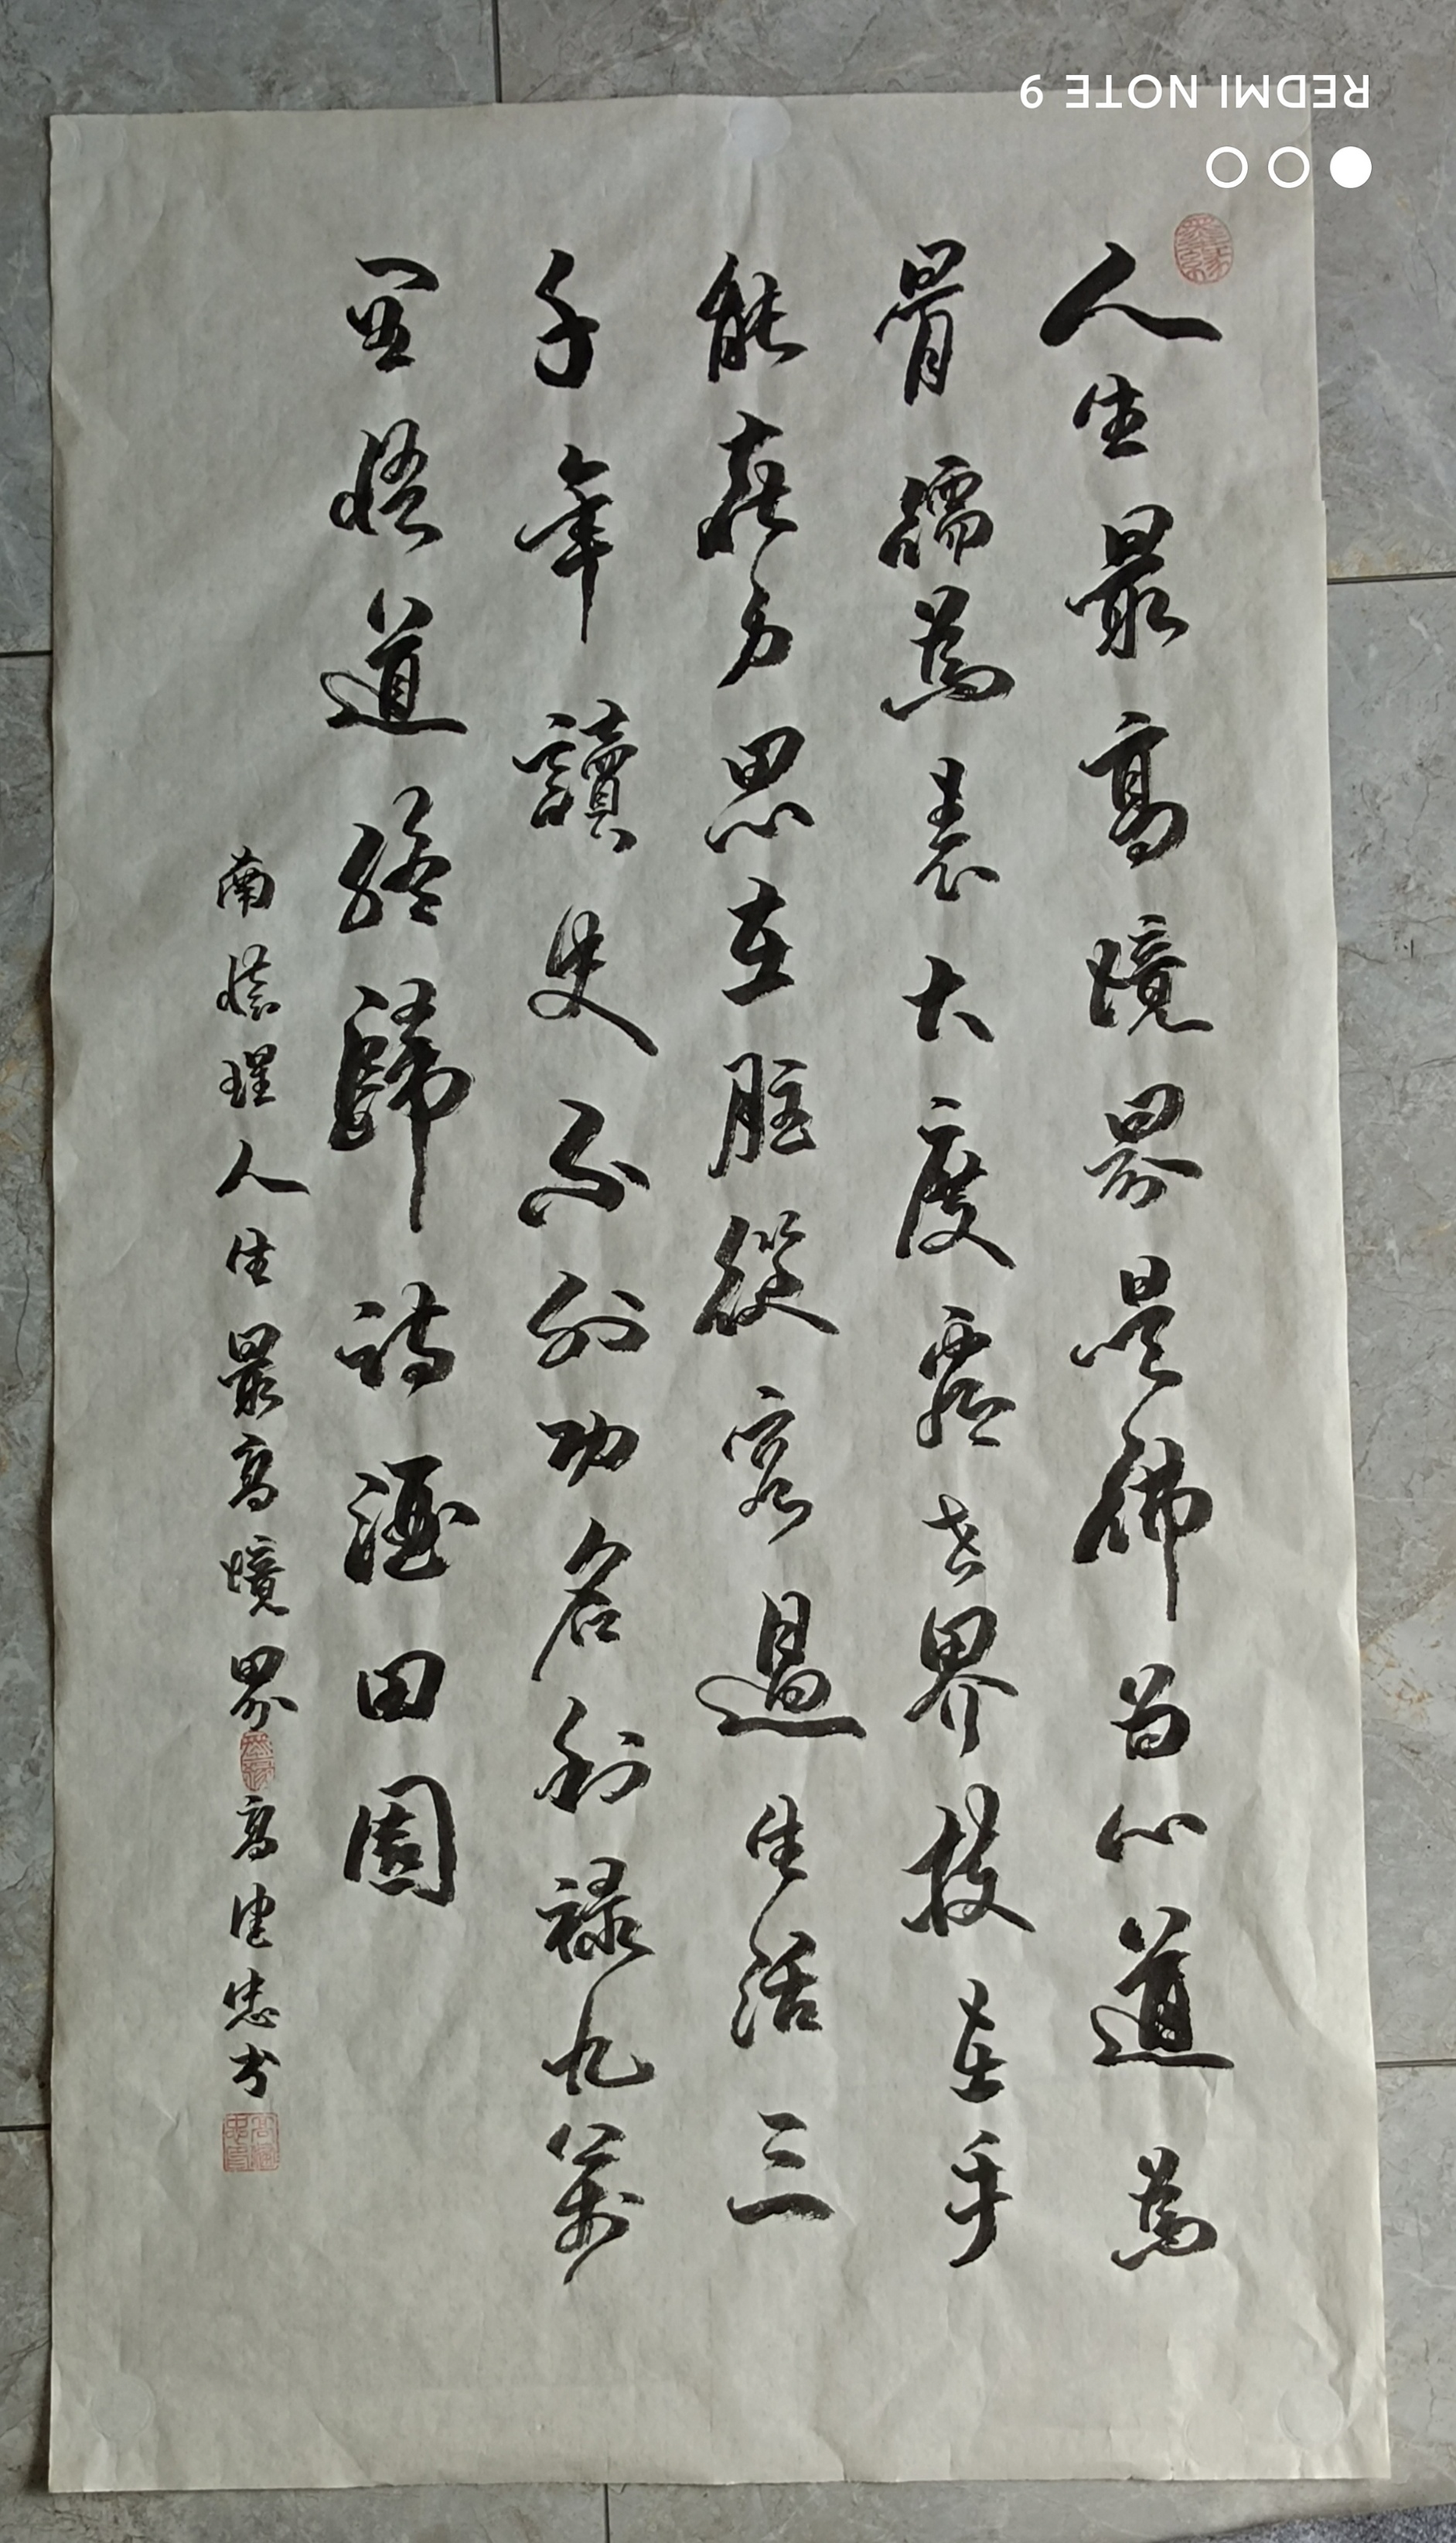 REDMI NOTE 9
人生最高境界是佛为心道為
骨儒為表大度看世界技在手
能在身思在脑從容過生活三
千年讀史不外功名利禄九萬
里悟道終歸诗酒田園
南懷瑾人生最高境界 高建忠书